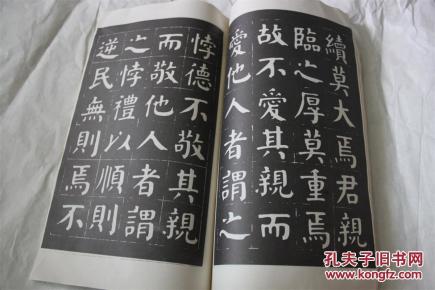 續莫大焉君親
臨之厚莫重焉
故不愛其親而
愛他人者謂之
悖德不敬其親
而敬他人者謂
之悖禮以順則
逆民無則焉不
孔夫子旧书网
www.kongfz.com